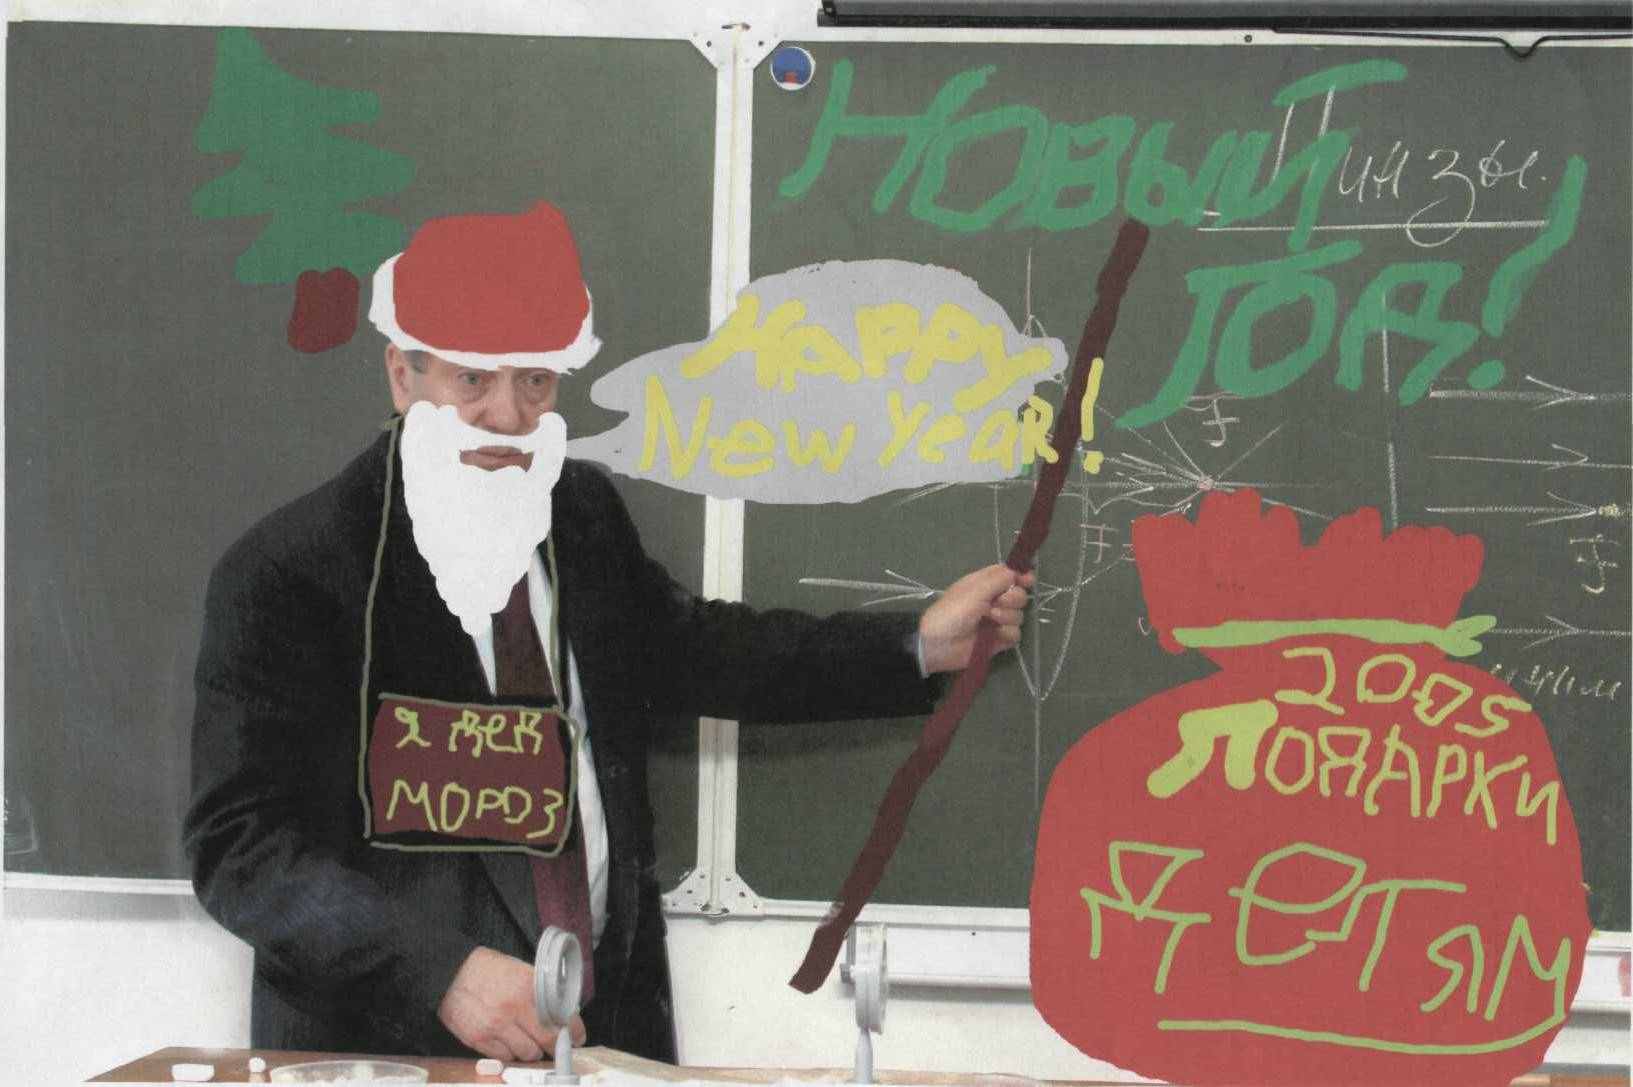 НОВЫЙ
Линзы.
ГОД!
Happy
New Year!
F
F
F
я дед
мороз
2005
ПОДАРКИ
ДЕТЯМ